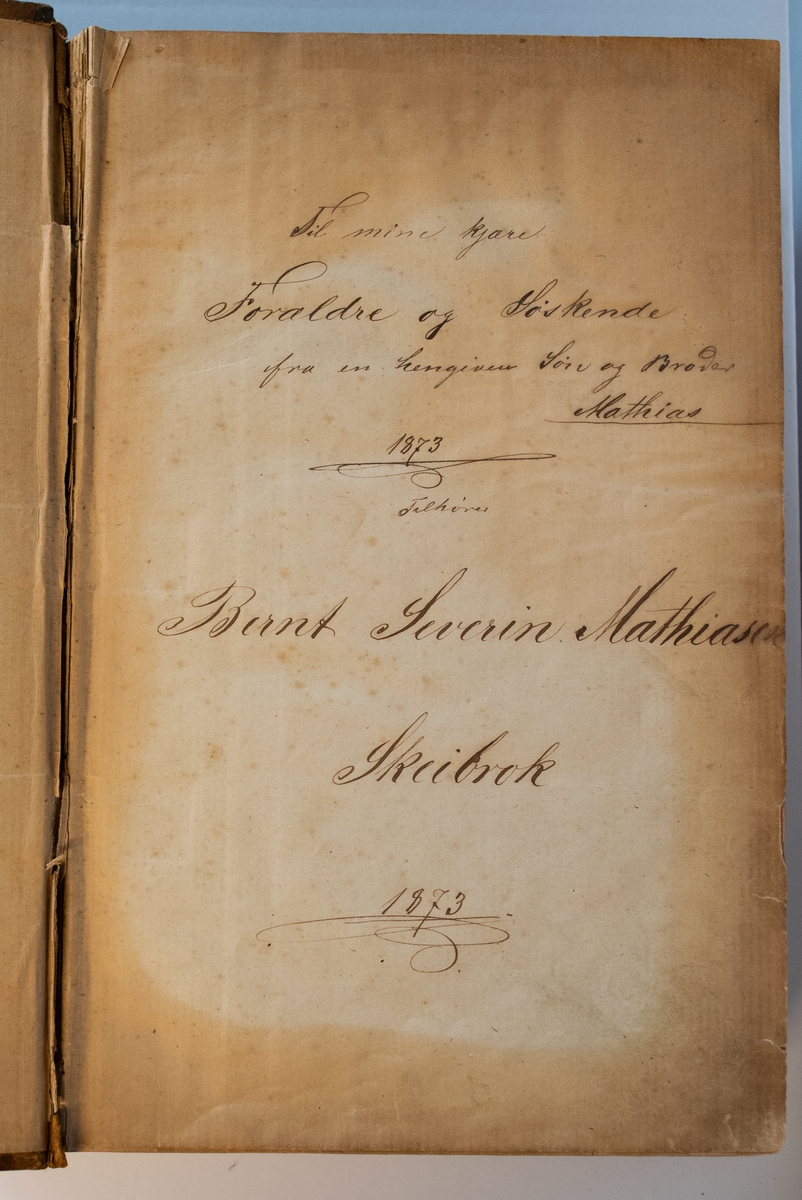 Til mine kjære
Forældre og Søskende
fra en hengiven Søn og Broder
Mathias
1873
Tilhører
Bernt Severin Mathiasen
Skeibrok
1873